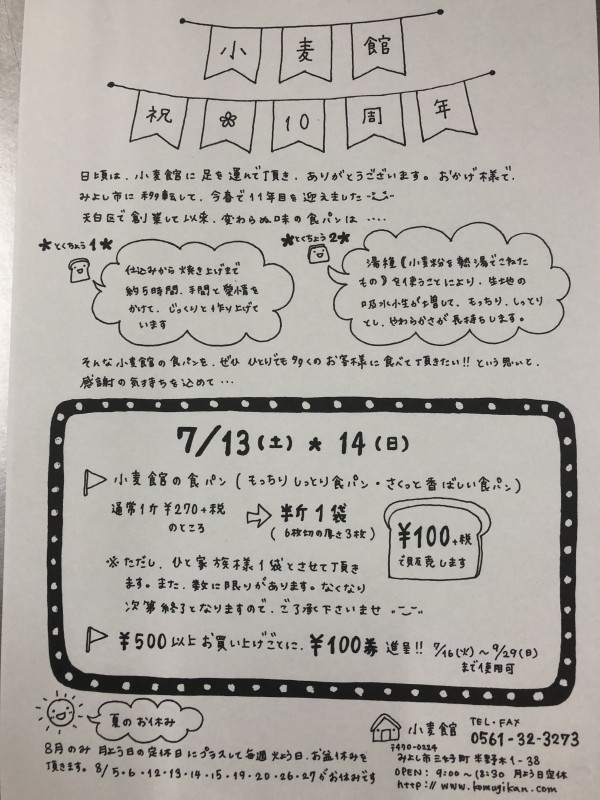 小麦館
祝 10周年
日頃は、小麦館に足を運んで頂き、ありがとうございます。おかげ様で、
みよし市に移転して、今春で11年目を迎えました
天白区で創業して以来、変わらぬ味の食パンは ････
とくちょう1
仕込みから焼き上げまで
約5時間、手間と愛情を
かけて、じっくりと作り上げて
います
とくちょう2
湯種《小麦粉を熱湯でこねた
もの》を使うことにより、生地の
吸水性が増して、もっちり、しっとり
とし、やわらかさが長持ちします。
そんな小麦館の食パンを、ぜひ ひとりでも多くのお客様に食べて頂きたい!! という思いと、
感謝の気持ちを込めて…
7/13(土) ★ 14(日)
小麦館の食パン (もっちりしっとり食パン・さくっと香ばしい食パン)
通常1斤¥270+税
のところ
半斤1袋
(6枚切の厚さ3枚)
¥100+税
で販売します
※ただし、ひと家族様1袋とさせて頂き
ます。また、数に限りがあります。なくなり
次第終了となりますので、ご了承下さいませ
¥500以上お買い上げごとに、¥100券 進呈!! 7/16(火)〜9/29(日)
まで使用可
夏のお休み
8月のみ 月よう日の定休日にプラスして毎週火よう日、お盆休みを
頂きます。8/5・6・12・13・14・15・19・20・26・27がお休みです
小麦館
TEL・FAX
0561-32-3273
〒470-0224
みよし市三好町半野木1-38
OPEN: 9:00〜18:30 月よう日定休
http://www.komugikan.com